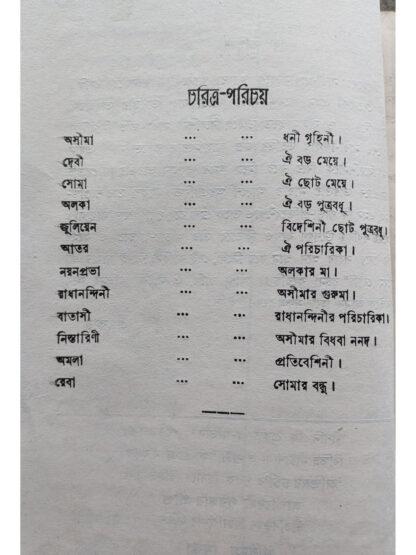 চরিত্র-পরিচয়
অসীমা ... ... ধনী গৃহিনী।
দেবী ... ... ঐ বড় মেয়ে।
সোমা ... ... ঐ ছোট মেয়ে।
অলকা ... ... ঐ বড় পুত্রবধূ।
জুলিয়েন ... ... বিদেশিনী ছোট পুত্রবধূ।
আতর ... ... ঐ পরিচারিকা।
নয়নপ্রভা ... ... অলকার মা।
রাধানন্দিনী ... ... অসীমার গুরুমা।
বাতাসী ... ... রাধানন্দিনীর পরিচারিকা।
নিস্তারিণী ... ... অসীমার বিধবা ননদ।
অমলা ... ... প্রতিবেশিনী।
রেবা ... ... সোমার বন্ধু।